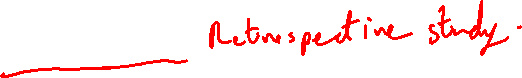 Retrospective study.